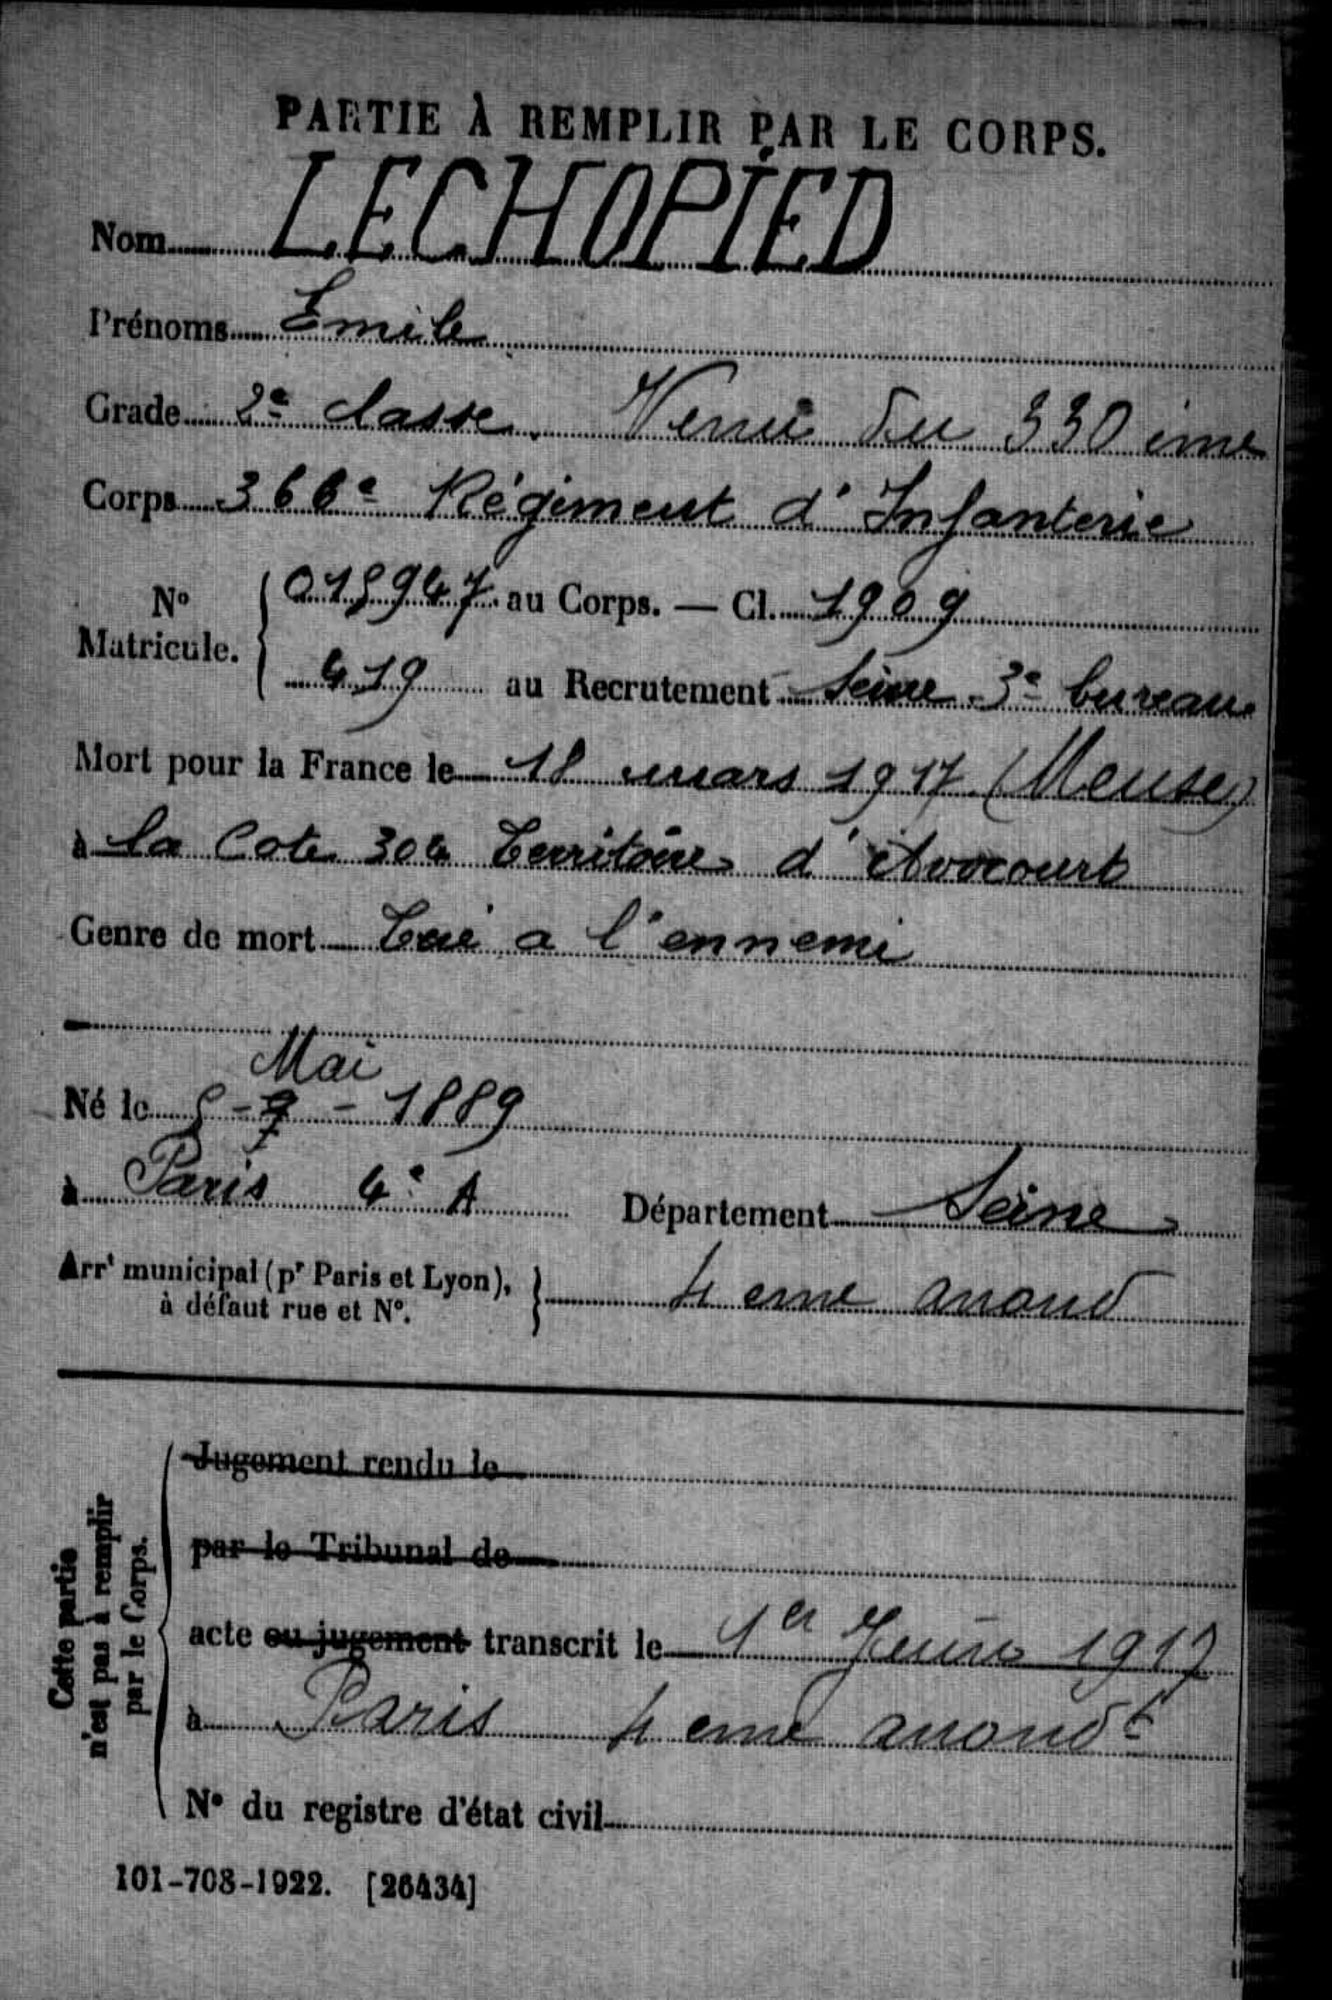 PARTIE À REMPLIR PAR LE CORPS.
Nom LECHOPIED
Prénoms Emile
Grade 2e classe. Venu du 330 ème
Corps 366e Régiment d'Infanterie
No Matricule. { 015947 au Corps. — Cl. 1909
419 au Recrutement Seine 3e bureau
Mort pour la France le 18 mars 1917 (Meuse)
à la Cote 304 Territoire d'Avocourt
Genre de mort Tué a l'ennemi
Mai
Né le 5-7-1889
à Paris 4e A Département Seine
Arrt municipal (pr Paris et Lyon), à défaut rue et No. } 4 eme arrond
Cette partie n'est pas à remplir par le Corps.
Jugement rendu le
par le Tribunal de
acte ou jugement transcrit le 1er Juin 1917
à Paris 4 eme arrondt
No du registre d'état civil
101-708-1922. [26434]